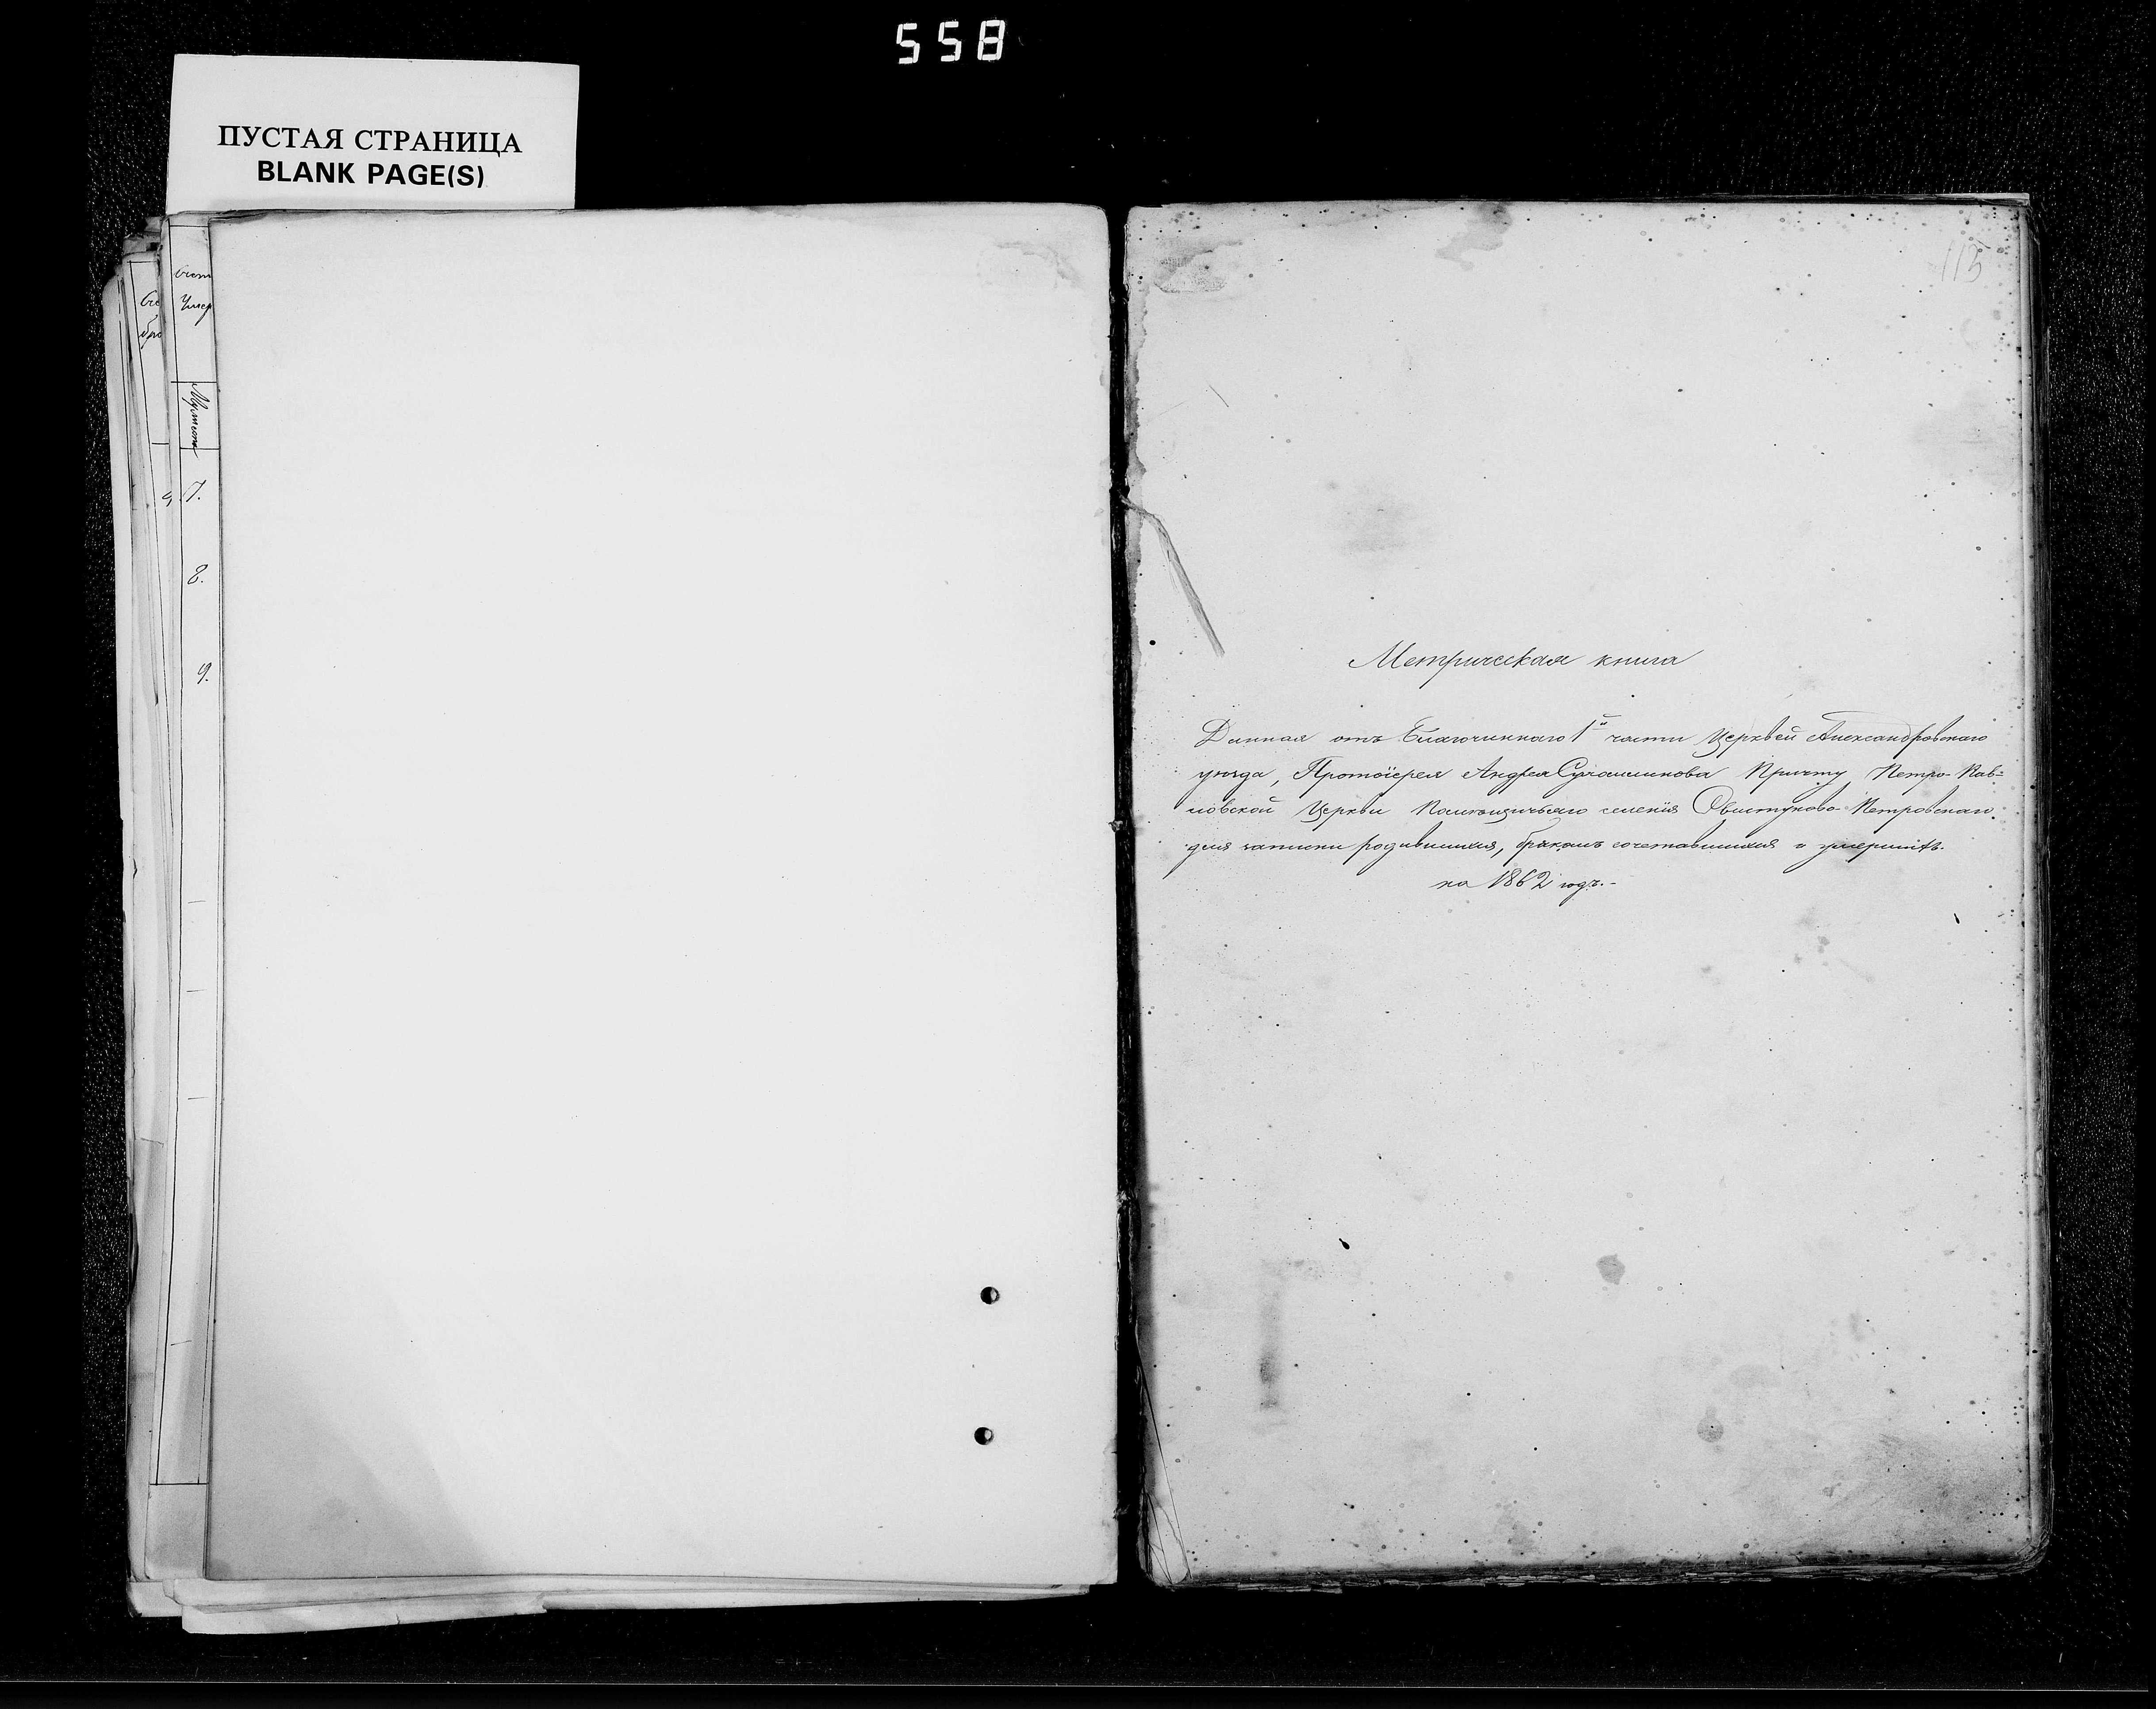 558
ПУСТАЯ СТРАНИЦА
BLANK PAGE(S)
7.
8.
9.
115
Метрическая книга
Данная отъ Благочиннаго 1й части Церквей Александровскаго
уѣзда, Протоіерея Андрея Причту Петро-Пав=
ловской Церкви Помѣщичьяго селенія Свистуново-Петровскаго.
для записки родившихся, бракомъ сочетавшихся и умершихъ.
на 1862 годъ.-